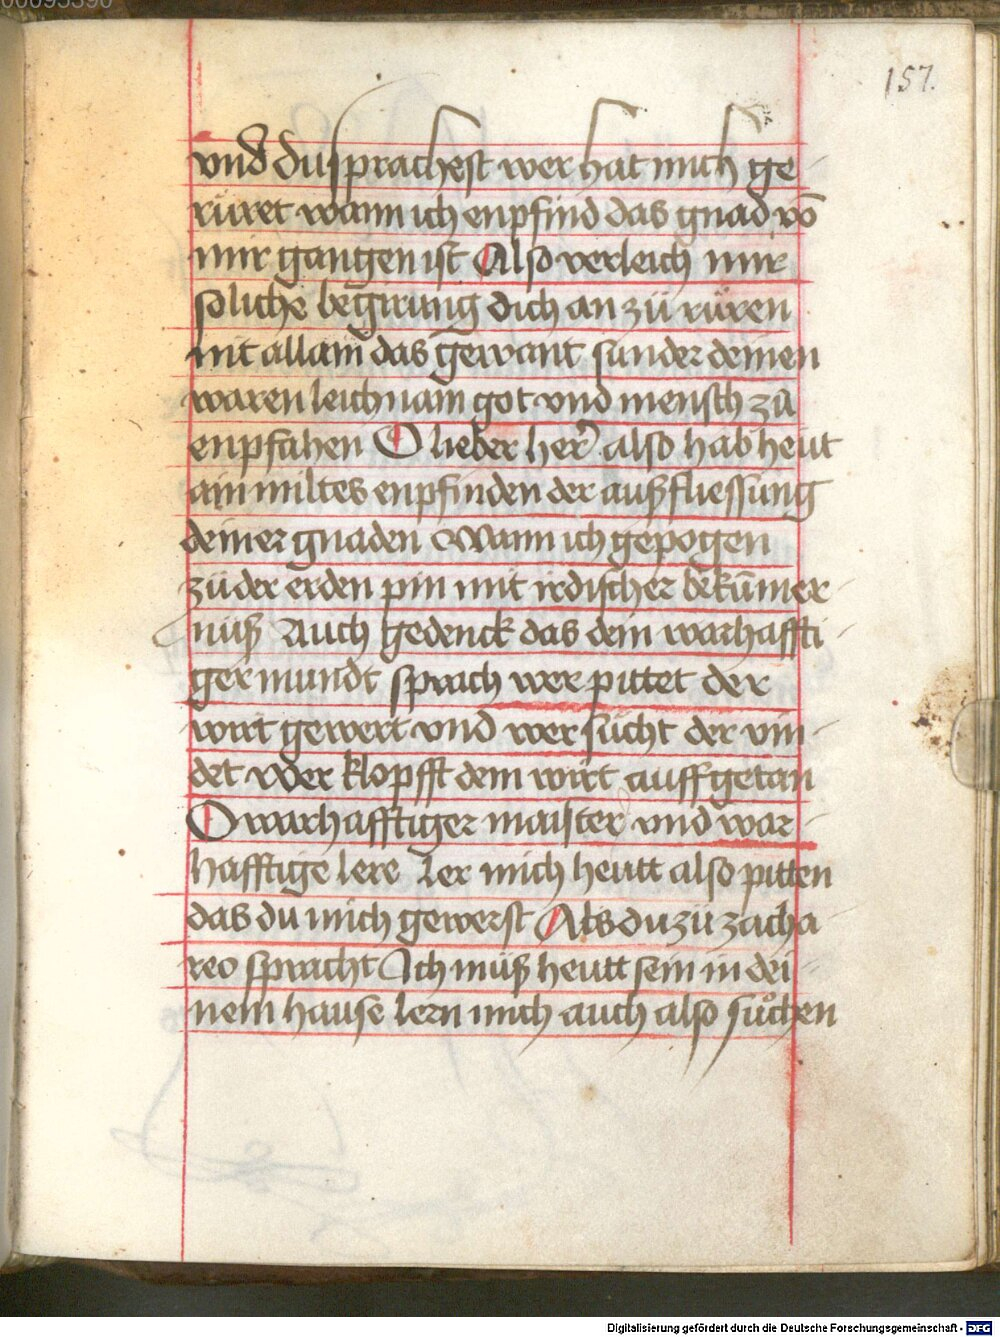 00095390
157.
vnd du sprachest wer hat mich ge
rüret wann ich enpfind das gnad vō
mir gangen ist Also verleich mir
soliche begirung dich an zü rüren
nit allain das gewant sunder deinen
waren leichnam got vnd mensch zü
enpfahen O lieber her also hab heüt
ain miltes enpfinden der außfliessung
deiner gnaden Wann ich gepogen
zü der erden pin mit irdischer bekūmer-
nüß Auch gedenck das dein warhaffti-
ger mundt sprach wer pittet der
wirt gewert vnd wer sücht der vin-
det wer klopfft dem wirt auffgetan
O warhafftiger maister vnd war-
hafftige lere Ler mich heutt also pitten
das du mich gewerst Als du zü zacha-
reo spracht Ich müß heutt sein in dei-
nem hause Lern mich auch also süchen
Digitalisierung gefördert durch die Deutsche Forschungsgemeinschaft - DFG